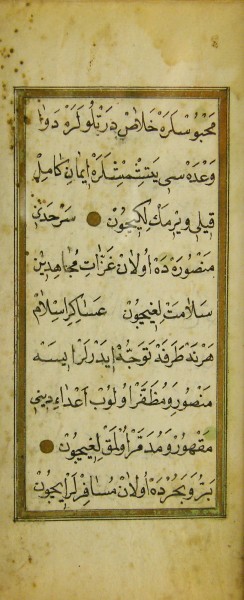 محبوسلره خلاص دردلولره دوا
وعده سی یتشمشلره ایمان کامل
قیلی ویرمك لكیچون سرحد
منصوره ده اولان غزات مجاهدین
سلامت لغیچون عساکر اسلام
هر نه طرفه توجه ایدرلر ایسه
منصور و مظفر اولوب أعداء دین
مقهور و مدمر اولمق لغیچون
بر و بحرده اولان مسافرلر ایچون